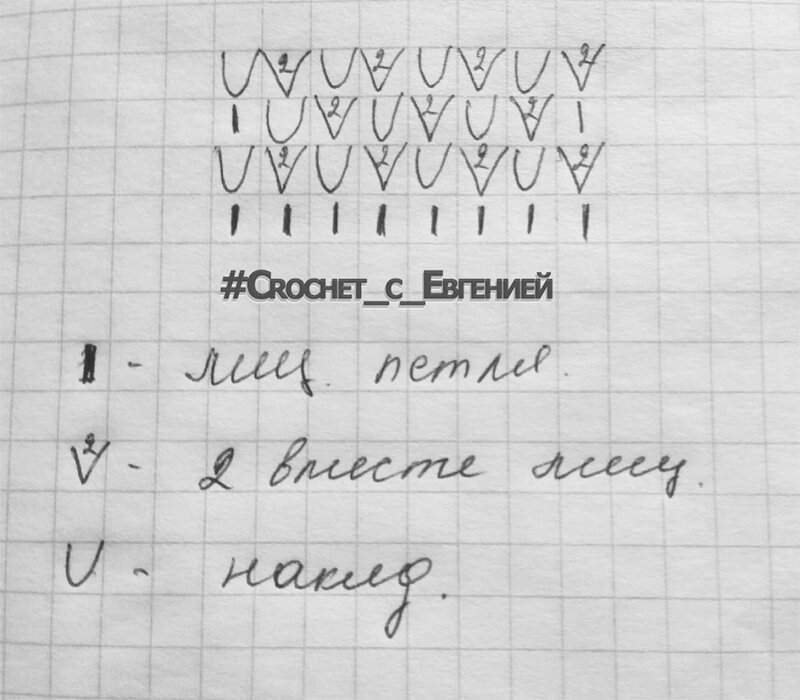 U 2 U 2 U 2 U 2
I U 2 U 2 U 2 I
U 2 U 2 U 2 U 2
I I I I I I I I
#Crochet_с_Евгенией
I - лиц. петля.
2 - 2 вместе лиц.
U - накид.